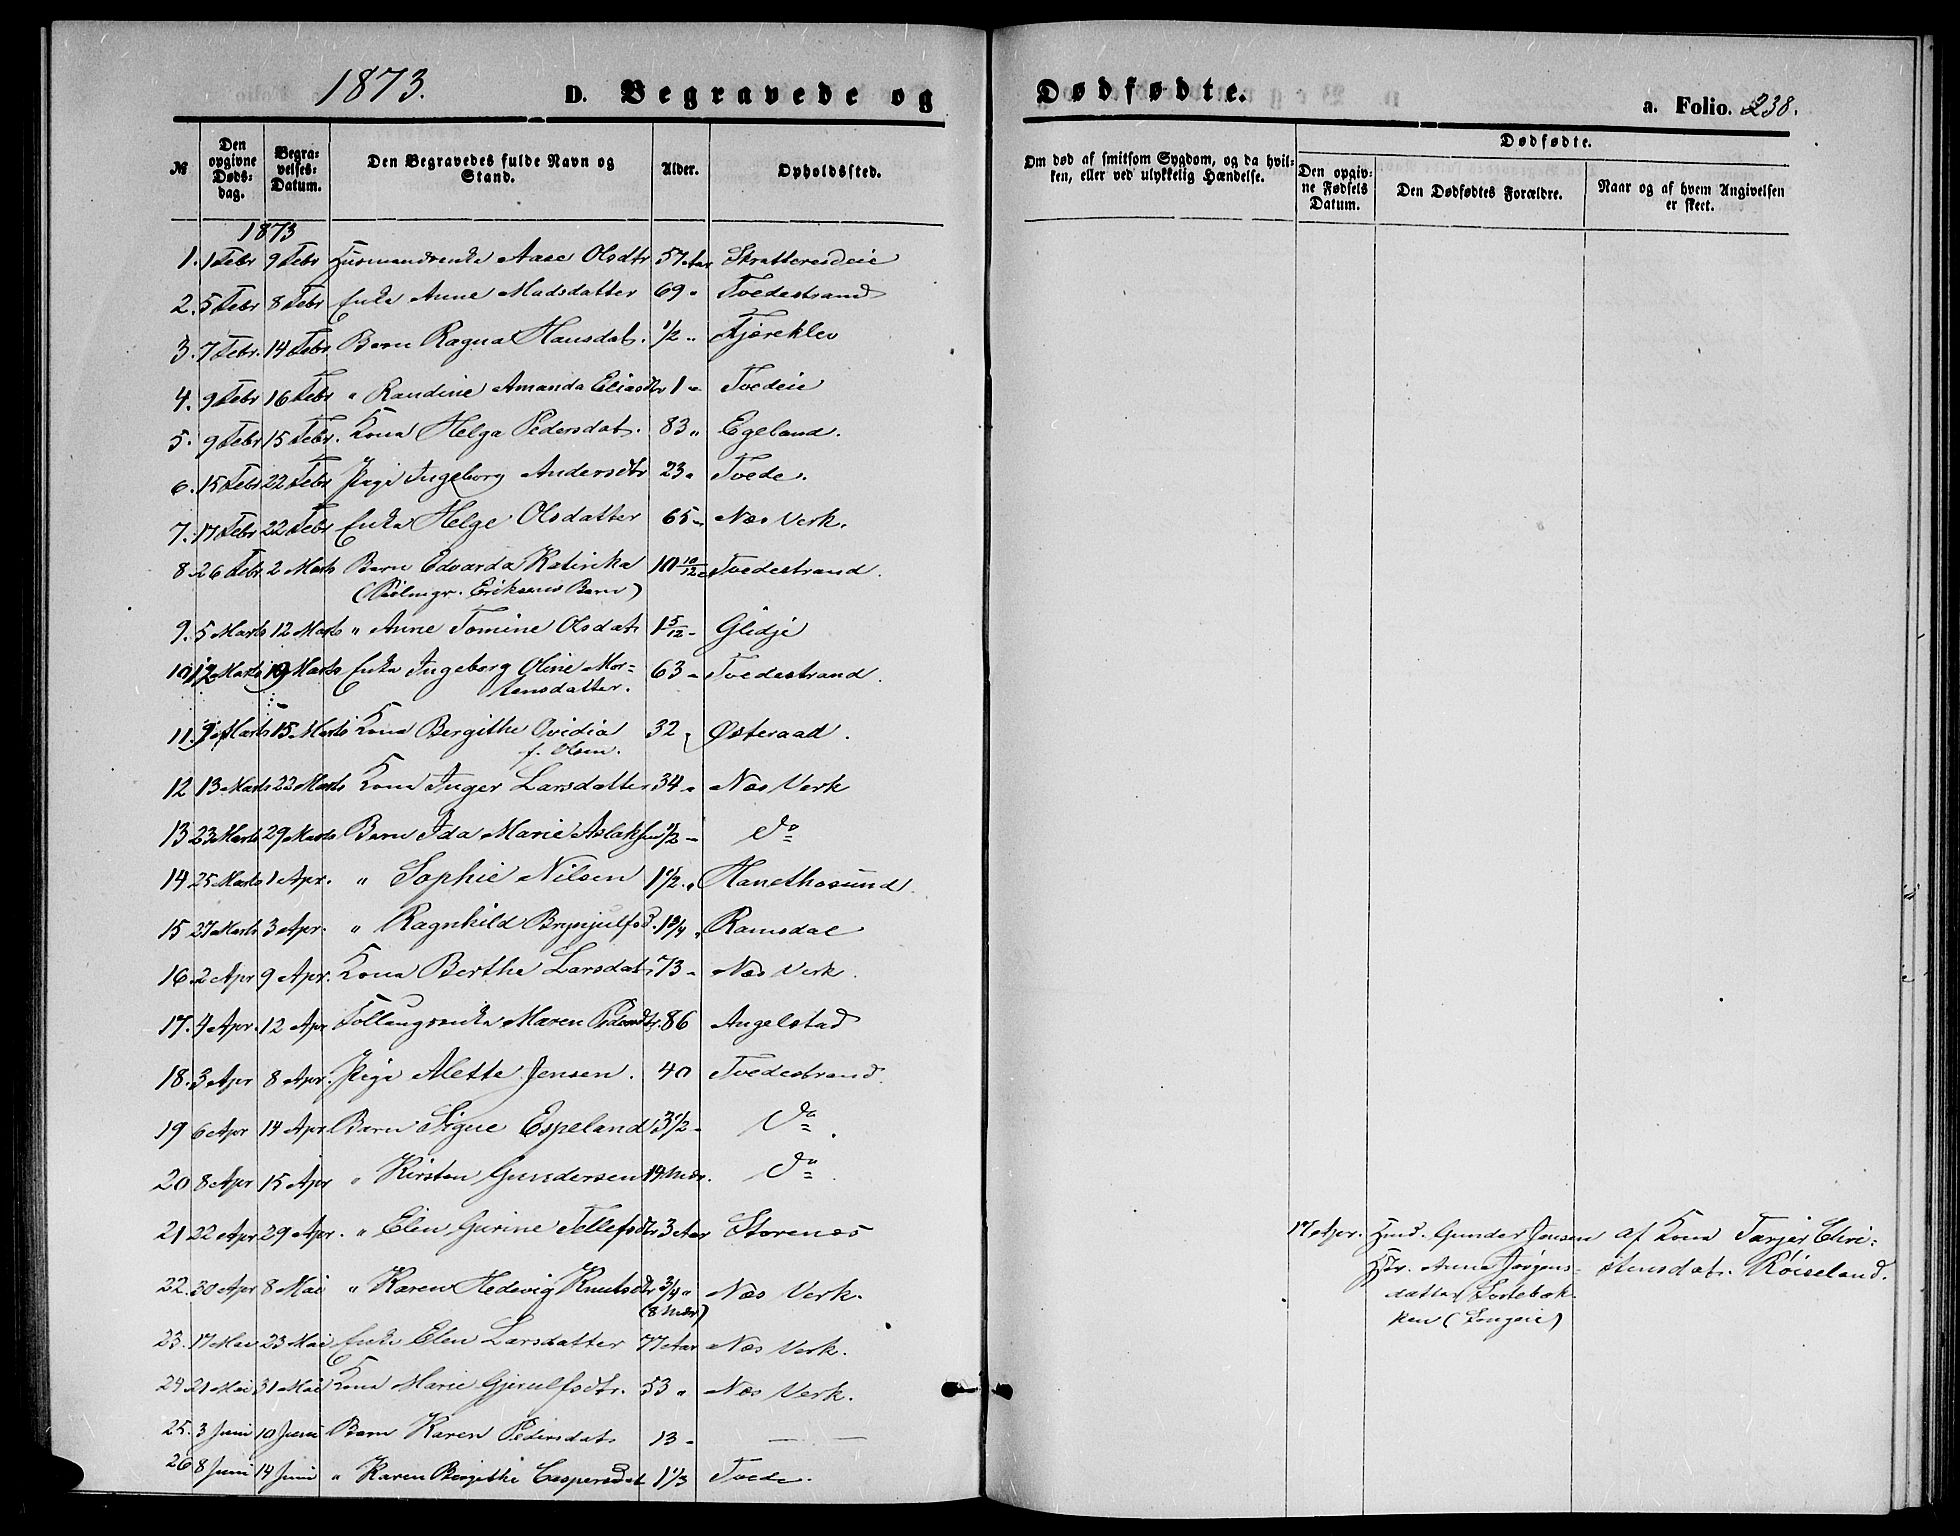 1873.
D. Begravede og
Dødfødte.
a. Folio. 238.
№
Den opgivne Døds-dag.
Begra-velses-Datum.
Den Begravedes fulde Navn og Stand.
Alder.
Opholdssted.
Om død af smitsom Sygdom, og da hvil-ken, eller ved ulykkelig Hændelse.
Dødfødte.
Den opgiv-ne Fødsels Datum.
Den Dødfødtes Forældre.
Naar og af hvem Angivelsen er skeet.
1873
1. 1 Febr 9 Febr Husmandsenke Aase Olsdtr 57 Aar Skratteredeie
2. 5 Febr 8 Febr Enke Anne Madsdatter 69 " Tvedestrand
3. 7 Febr. 14 Febr Barn Ragna Hansdat. 1/2 " Kjæreklev
4. 9 Febr 16 Febr " Randine Amanda Eliasdtr 1 " Tvedeie
5. 9 Febr 15 Febr. Kona Helga Pedersdat. 83 " Egeland.
6. 15 Febr 22 Febr Pige Ingeborg Andersdtr 23 " Tvede.
7. 17 Febr 22 Febr Enke Helge Olsdatter 65 " Næs Verk.
8. 26 Febr 2 Marts Barn Edvarda Katirika 10 10/12 " Tvedestrand.
Eriksens Barn)
9. 5 Marts 12 Marts " Anne Tomine Olsdat. 1 5/12 " Glidje
10 12 Marts 19 Marts Enke Ingeborg Oline Mor-
tensdatter. 63 " Tvedestrand.
11. 9 Marts 15 Marts Kona Bergithe Ovidia
f. Olsen. 32 " Østeraad.
12 13 Marts 22 Marts Kona Inger Larsdatter 34 " Næs Verk
13 23 Marts 29 Marts Barn Ida Marie Aslaksen 1/2 " do
14 25 Marts 1 Apr. " Sophie Nilsen 1 1/2 " Hanethosund.
15 27 Marts 3 Apr. " Ragnhild Brynjulfsd. 1 3/4 " Ramsdal
16. 2 Apr 9 Apr. Kona Berthe Larsdat. 73 " Næs Verk.
17. 4 Apr. 12 Apr Follaugsenke Maren Pedersdtr. 86 Angelstad
18. 3 Apr 8 Apr. Pige Alette Jensen. 40 Tvedestrand.
19 6 Apr 14 Apr Barn Signe Espeland 3 1/2 " do
20 8 Apr 15 Apr " Kirsten Gundersen 14 Mdr. do
21 22 Apr 29 Apr. " Elen Gurine Tellefsdtr 3 Aar Storenæs
22. 30 Apr 8 Mai " Karen Hedevig Knutsdtr 3/4 " Næs Verk.
(8 Mdr)
23. 17 Mai 23 Mai Enke Elen Larsdatter 77 Aar Næs Verk.
24. 21 Mai 31 Mai Kona Marie Gjerulfsdtr. 53 " Næs Verk.
25. 3 Juni 10 Juni Barn Karen Pedersdat. 13 " — —
26 8 Juni 14 Juni " Karen Bergithe Caspersdat 1 1/3 Tvede.
17 Apr. Hmd. Gunder Jensen af Kona Tarjer Chri-
Anna Jørgens- stensdat. Røiseland.
datter
ken (Longeie)